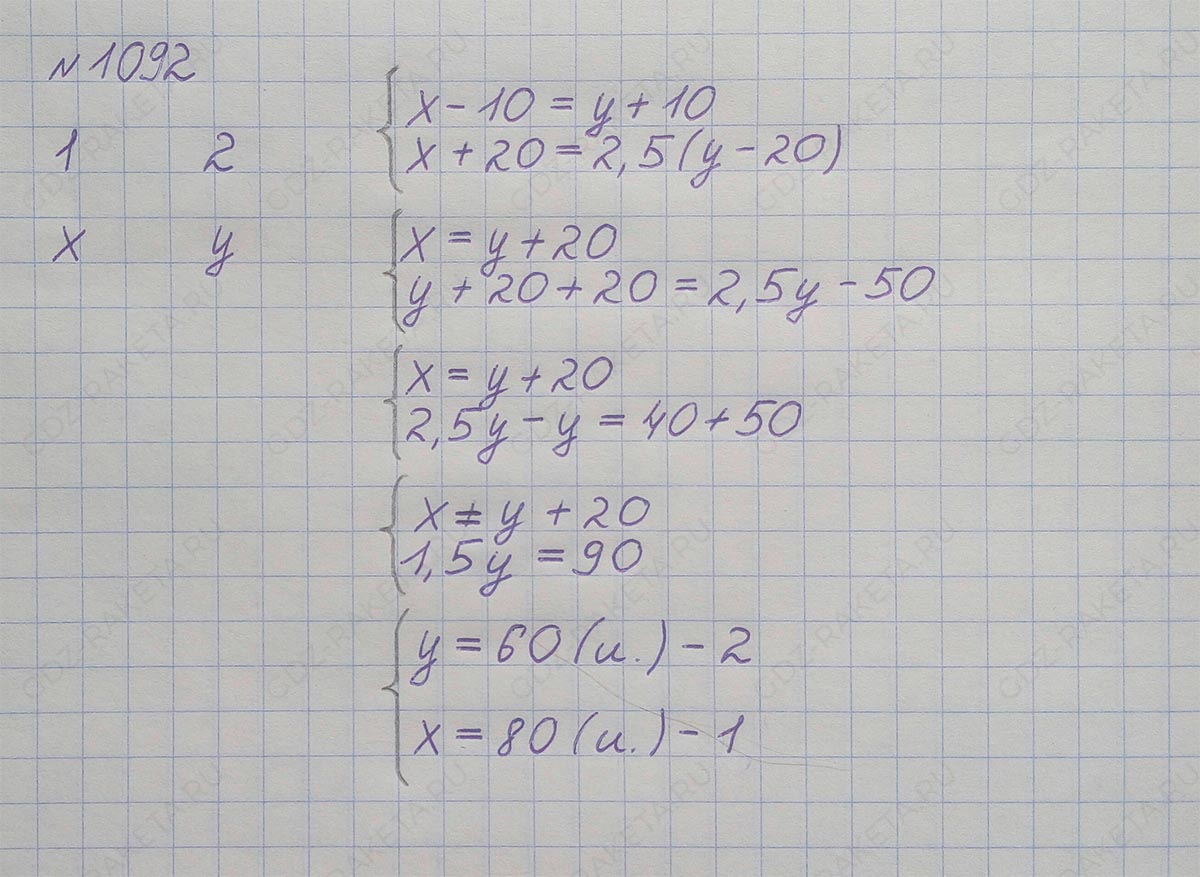 №1092
x - 10 = y + 10
1 2
x + 20 = 2,5(y - 20)
x y
x = y + 20
y + 20 + 20 = 2,5y - 50
x = y + 20
2,5y - y = 40 + 50
x = y + 20
1,5y = 90
y = 60 (и.) - 2
x = 80 (и.) - 1
GDZ-RAKETA.RU